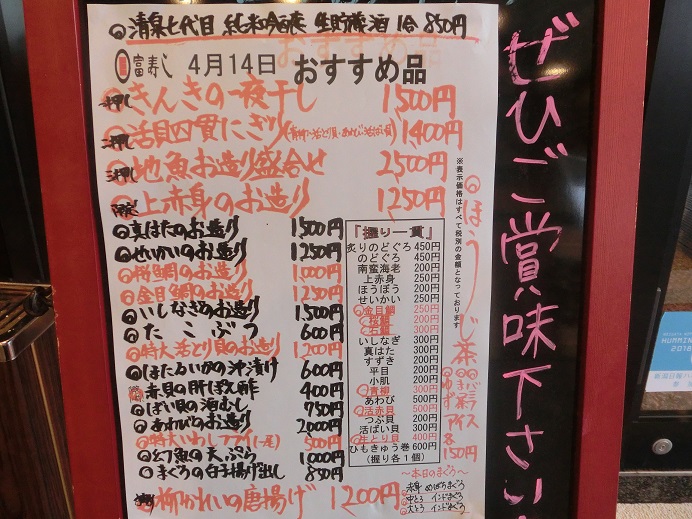 清泉七代目 純米吟醸 生貯蔵酒 1合 850円
富寿し 4月14日 おすすめ品
一押し きんきの一夜干し 1500円
二押し 活貝四貫にぎり 1,400円
三押し 地魚お造り盛合せ 2,500円
限定 上赤身のお造り 1250円
真はたのお造り 1500円
せいかいのお造り 1250円
桜鯛のお造り 1,000円
金目鯛のお造り 1250円
いしなぎのお造り 1,500円
たこぶつ 600円
特大活とり貝のお造り 1,200円
ほたるいかの沖漬け 600円
赤貝の肝ぽん酢 400円
ばい貝の酒むし 750円
あわびのお造り 2000円
特大いわしフライ(一尾) 500円
幻魚の天ぷら 1,000円
まぐろの白子揚げ出し 850円
柳かれいの唐揚げ 1200円
『握り一貫』
炙りのどぐろ 450円
のどぐろ 450円
南蛮海老 200円
上赤身 250円
ほうぼう 200円
せいかい 250円
金目鯛 250円
桜鯛 200円
石鯛 300円
いしなぎ 300円
真はた 300円
すずき 200円
平目 200円
小肌 200円
青柳 300円
あわび 500円
活赤貝 500円
つぶ貝 200円
活ばい貝 300円
生とり貝 400円
ひもきゅう巻 600円
(握り各1個)
※表示価格はすべて税別の金額となっております
ほうじ茶
アイス
各
150円
~本日のまぐろ~
赤身 めばちまぐろ
中とろ インドまぐろ
大とろ インドまぐろ
ぜひご賞味下さい
HUMMIN
2018